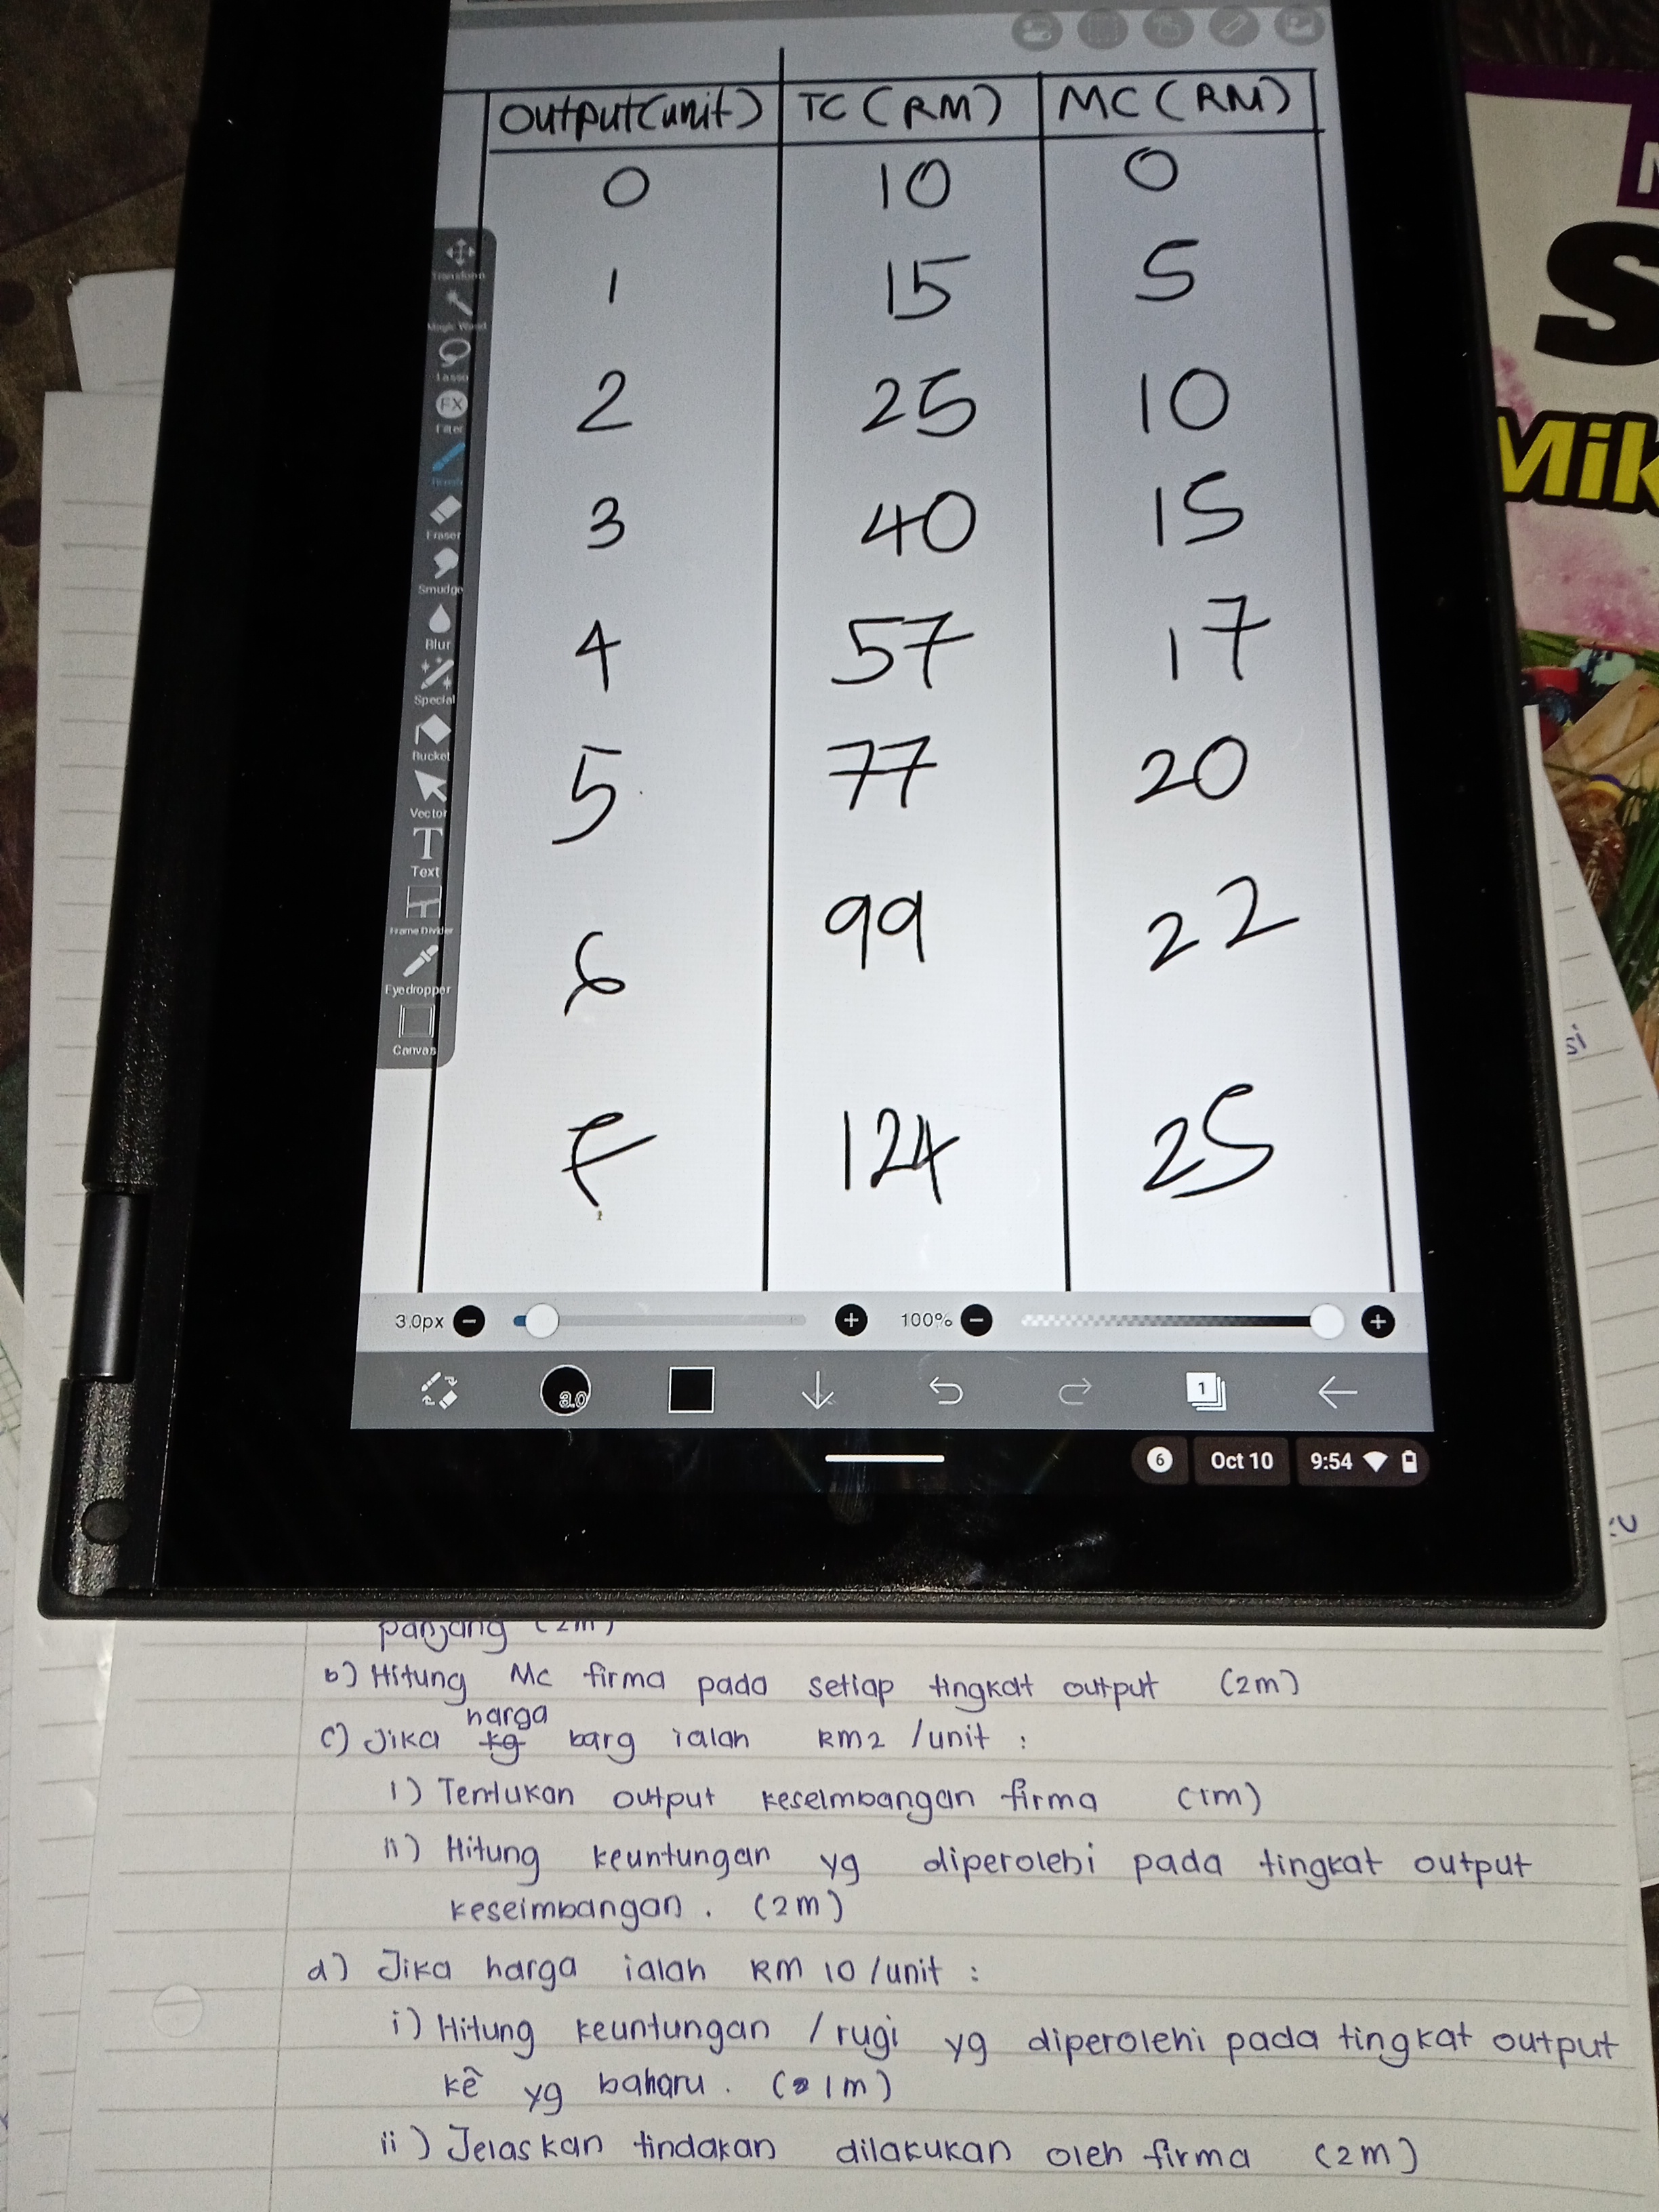 Output(unit) TC (RM) MC (RM)
0 10 0
1 15 5
2 25 10
3 40 15
4 57 17
5 77 20
6 99 22
7 124 25
Transform
Magic Wand
Lasso
FX
Filter
Eraser
Smudge
Blur
Special
Bucket
Vector
T
Text
Frame Divider
Eyedropper
Canvas
3.0px 100%
3.0 1
6 Oct 10 9:54
S
Mik
si
panjang (2m)
b) Hitung MC firma pada setiap tingkat output (2m)
harga
c) Jika kg barg ialah RM2 /unit :
i) Tentukan output keseimbangan firma (1m)
ii) Hitung keuntungan yg diperolehi pada tingkat output
keseimbangan . (2m)
d) Jika harga ialah RM 10 /unit :
i) Hitung keuntungan / rugi yg diperolehi pada tingkat output
kê yg baharu . (1m)
ii) Jelaskan tindakan dilakukan oleh firma (2m)